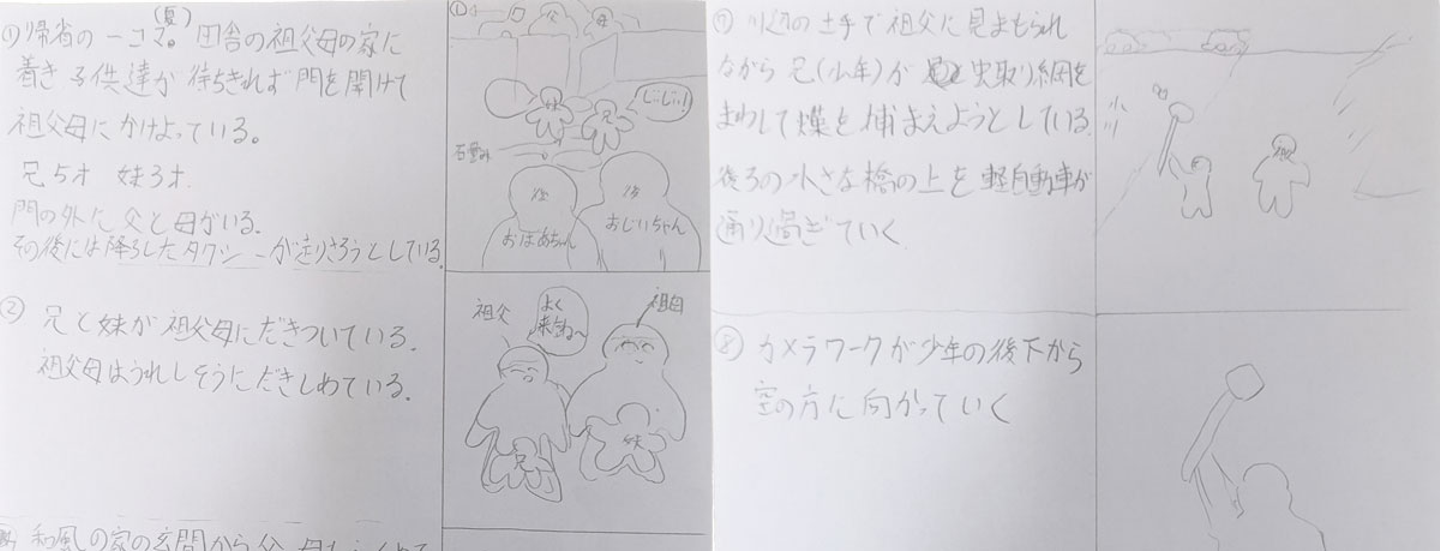 ① 帰省の一コマ。(夏) 田舎の祖父母の家に
着き子供達が待ちきれず門を開けて
祖父母にかけよっている。
兄5才 妹3才.
門の外に父と母がいる.
その後には降ろしたタクシーが走りさろうとしている.
①
父
母
妹
兄
じぃじぃ!
石畳み
後
後
おばあちゃん
おじいちゃん
② 兄と妹が祖父母にだきついている.
祖父母はうれしそうにだきしめている.
祖父
よく
来たね〜
祖母
兄
妹
和風の家の玄関から父
⑦ 川辺の土手で祖父に見まもられ
ながら兄(少年)が虫取り網を
まわして蝶を捕まえようとしている.
後ろの小さな橋の上を軽自動車が
通り過ぎていく
小川
祖父
⑧ カメラワークが少年の後下から
空の方に向かっていく